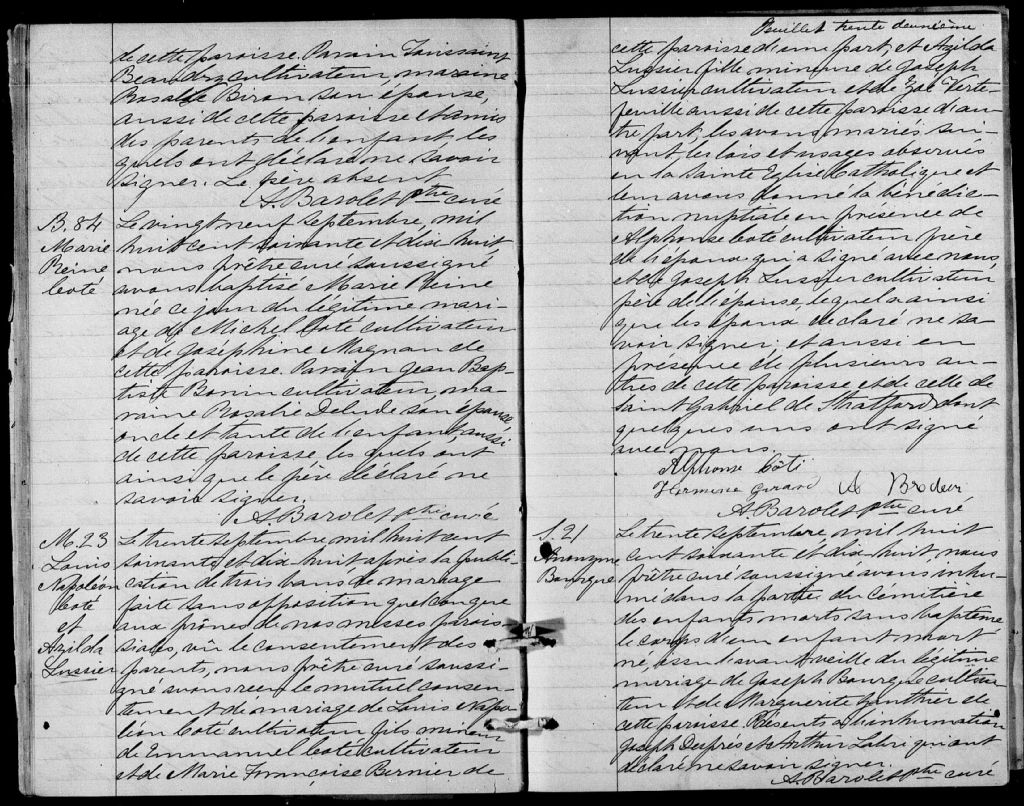 de cette paroisse. Parain Toussaint
Beaudry cultivateur, maraine
Rosalie Biron son épouse,
aussi de cette paroisse et amis
des parents de l'enfant les
quels ont déclaré ne savoir
signer. Le père absent
A. Barolet ptre curé
B. 84
Marie
Reine
Coté
Le vingt neuf septembre, mil
huit cent soixante et dix-huit
nous prêtre curé soussigné
avons baptisé Marie Reine
née ce jour du légitime mari-
age de Michel Coté cultivateur
et de Joséphine Magnan de
cette paroisse. Parain Jean Bap-
tiste Bonin cultivateur, ma-
raine Rosalie Delude son épouse,
oncle et tante de l'enfant, aussi
de cette paroisse les quels ont
ainsi que le père déclaré ne
savoir signer.
A. Barolet ptre curé
M. 23
Louis
Napoléon
Coté
et
Azilda
Lussier
Le trente septembre mil huit cent
soixante et dix-huit, après la publi-
cation de trois bans de mariage
faite sans opposition quelconque
aux prônes de nos messes parois
siales, vû le consentement des
parents, nous prêtre curé soussi-
gné avons reçu le mutuel consen-
tement de mariage de Louis Napo-
léon Coté cultivateur fils mineur
de Emmanuel Coté cultivateur
et de Marie Françoise Bernier de
Feuillet trente deuxième
cette paroisse d'une part, et Azilda
Lussier fille mineure de Joseph
Lussier cultivateur et de Zoé Verte-
feuille aussi de cette paroisse d'au-
tre part, les avons mariés sui-
vant les lois et usages observés
en la Sainte Eglise Catholique et
leur avons donné la bénédic-
tion nuptiale en présence de
Alphonse Coté cultivateur frère
de l'époux qui a signé avec nous,
et de Joseph Lussier cultivateur
père de l'épouse, lequel a ainsi
que les époux, déclaré ne sa-
voir signer; et aussi en
présence de plusieurs au-
tres de cette paroisse et de celle de
Saint Gabriel de Stratford dont
quelques uns ont signé
avec nous.
Alphonse Coté
Hermine Girard A Brodeur
A. Barolet ptre curé
S. 21
Anonyme
Bourgre
Le trente septembre, mil huit
cent soixante et dix-huit, nous
prêtre curé soussigné avons inhu-
mé dans la partie du cimetière
des enfants morts sans baptème
le corps d'un enfant mort
né, l'avant veille du légitime
mariage de Joseph cultiva-
teur et de Marguerite Gonthier de
cette paroisse. Présents à l'inhumation
Joseph Duprés et Arthur Labri qui ont
déclaré ne savoir signer.
A. Barolet ptre curé